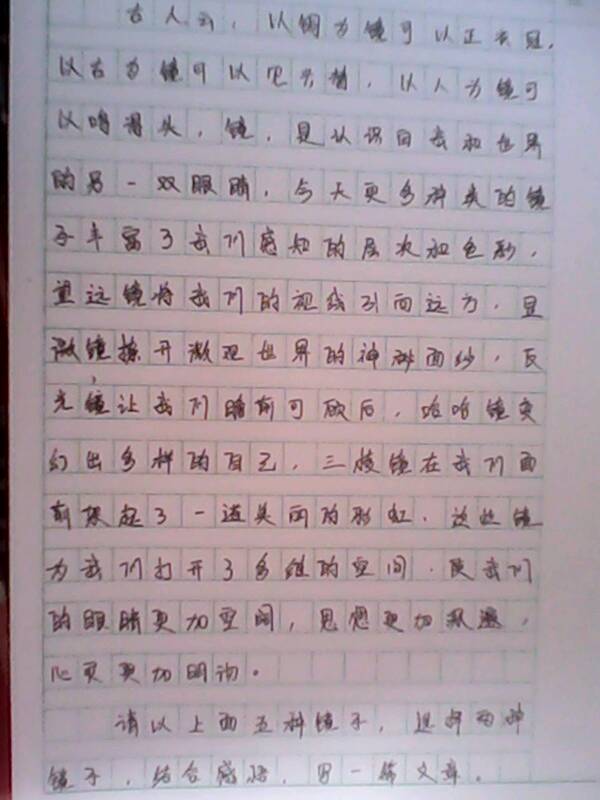 古人云，以铜为镜可以正衣冠，
以古为镜可以见兴替，以人为镜可
以明得失，镜，是认识自我和世界
的另一双眼睛，今天更多种类的镜
子丰富了我们感知的层次和色彩，
望远镜将我们的视线引向远方，显
微镜撩开微观世界的神秘面纱，反
光镜让我们瞻前可顾后，哈哈镜变
幻出多样的自己，三棱镜在我们面
前架起了一道美丽的彩虹，这些镜
为我们打开了多维的空间，使我们
的眼睛更加空阔，思想更加飘逸，
心灵更加明澈。
请以上面五种镜子，选择两种
镜子，结合感悟，写一篇文章。